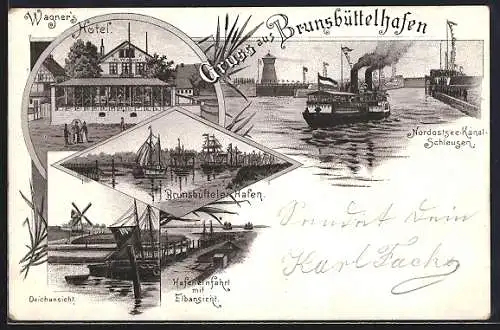 Wagner's
Hotel.
Gruss aus
Brunsbüttelhafen
Nordostsee-Kanal-
Schleusen.
Brunsbütteler Hafen.
Deichansicht.
Hafeneinfahrt
mit
Elbansicht.
Sendet Dein
Karl